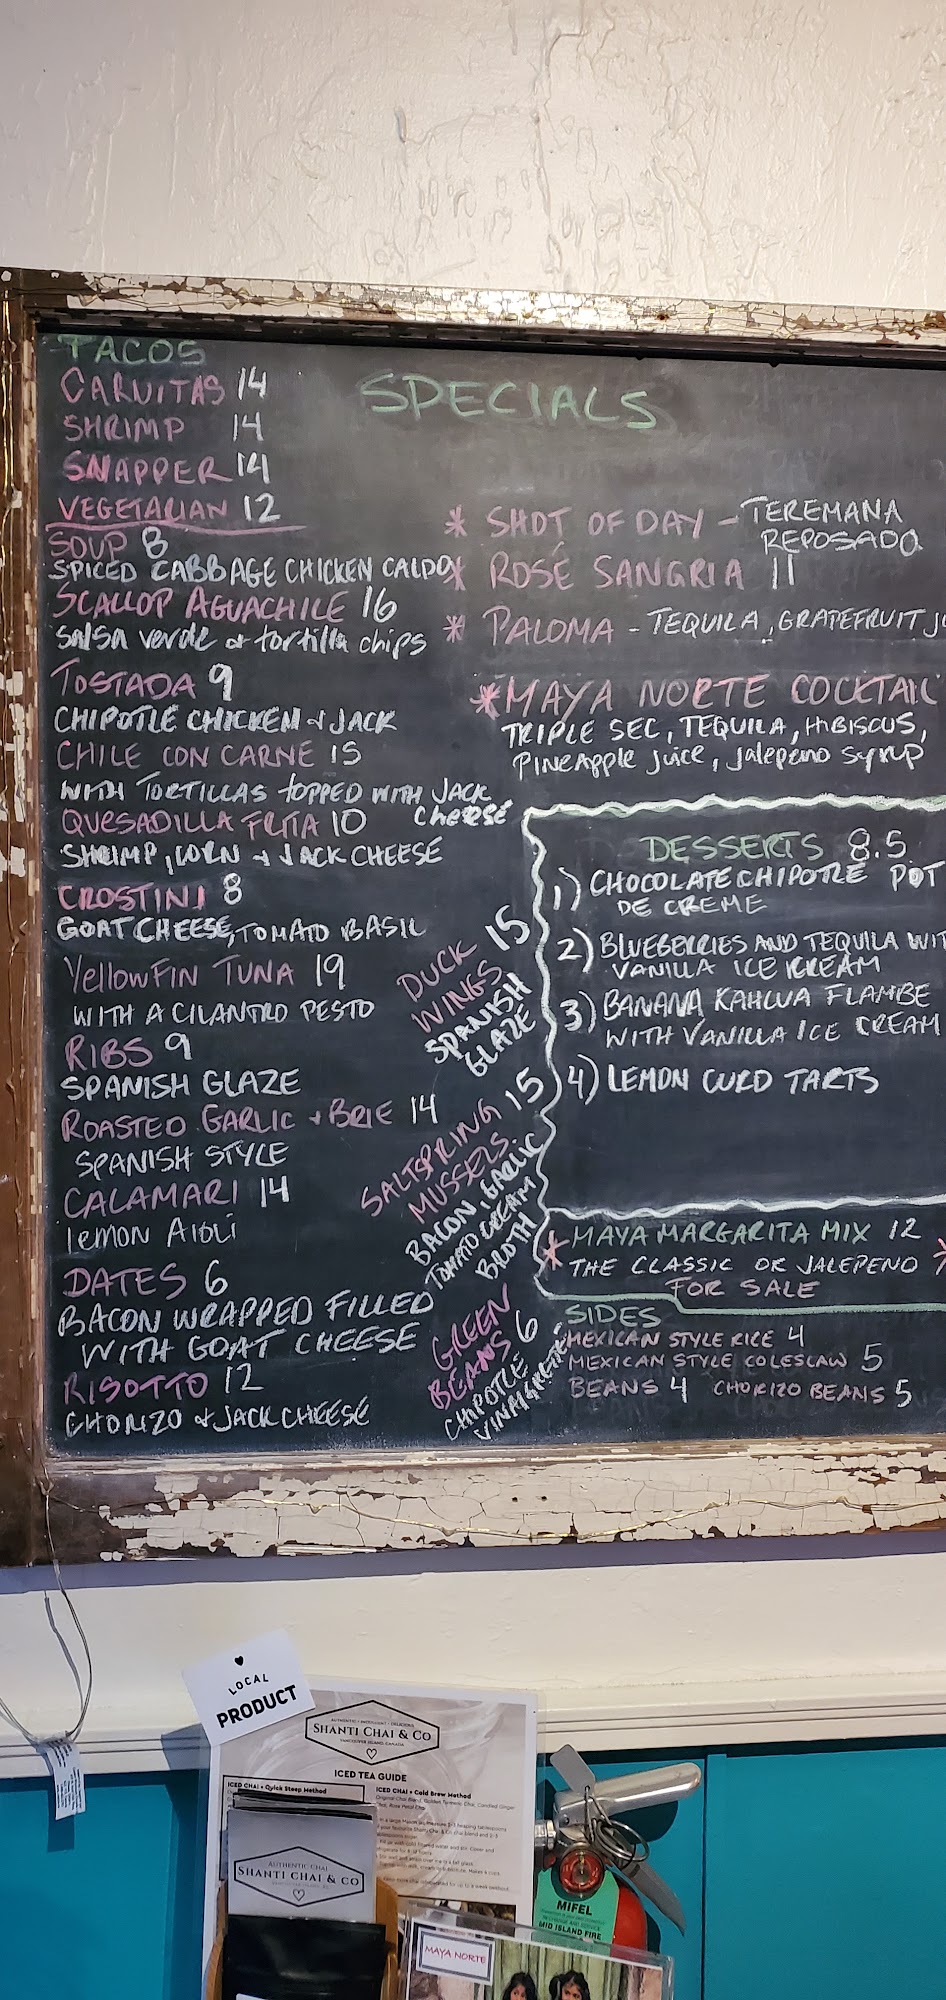 TACOS
CARNITAS 14
SHRIMP 14
SNAPPER 14
VEGETARIAN 12
SOUP 8
SPICED CABBAGE CHICKEN CALDO
SCALLOP AGUACHILE 16
salsa verde + tortilla chips
TOSTADA 9
CHIPOTLE CHICKEN + JACK
CHILE CON CARNE 15
WITH TORTILLAS TOPPED WITH JACK
CHEESE
QUESADILLA FRITA 10
SHRIMP, CORN + JACK CHEESE
CROSTINI 8
GOAT CHEESE, TOMATO BASIL
YELLOWFIN TUNA 19
WITH A CILANTRO PESTO
RIBS 9
SPANISH GLAZE
ROASTED GARLIC + BRIE 14
SPANISH STYLE
CALAMARI 14
lemon AIOLI
DATES 6
BACON WRAPPED FILLED
WITH GOAT CHEESE
RISOTTO 12
CHORIZO + JACK CHEESE
DUCK 15
WINGS
SPANISH
GLAZE
SALTSPRING 15
MUSSELS
BACON, GARLIC
TOMATO CREAM
BROTH
GREEN
BEANS 6
CHIPOTLE
VINAIGRETTE
SPECIALS
* SHOT OF DAY - TEREMANA
REPOSADO
* ROSÉ SANGRIA 11
* PALOMA - TEQUILA, GRAPEFRUIT JU
* MAYA NORTE COCKTAIL
TRIPLE SEC, TEQUILA, HIBISCUS,
PINEAPPLE JUICE, Jalepeno syrup
DESSERTS 8.5
1) CHOCOLATE CHIPOTLE POT
DE CREME
2) BLUEBERRIES AND TEQUILA WIT
VANILLA ICE KREAM
3) BANANA KAHLUA FLAMBE
WITH VANILLA ICE CREAM
4) LEMON CURD TARTS
* MAYA MARGARITA MIX 12
THE CLASSIC OR JALEPENO *
FOR SALE
SIDES
MEXICAN STYLE RICE 4
MEXICAN STYLE COLESLAW 5
BEANS 4 CHORIZO BEANS 5
LOCAL
PRODUCT
SHANTI CHAI & CO
VANCOUVER ISLAND, CANADA
ICED TEA GUIDE
ICED CHAI • Quick Steep Method
ICED CHAI • Cold Brew Method
AUTHENTIC CHAI
SHANTI CHAI & CO
MIFEL
MID ISLAND FIRE
MAYA NORTE